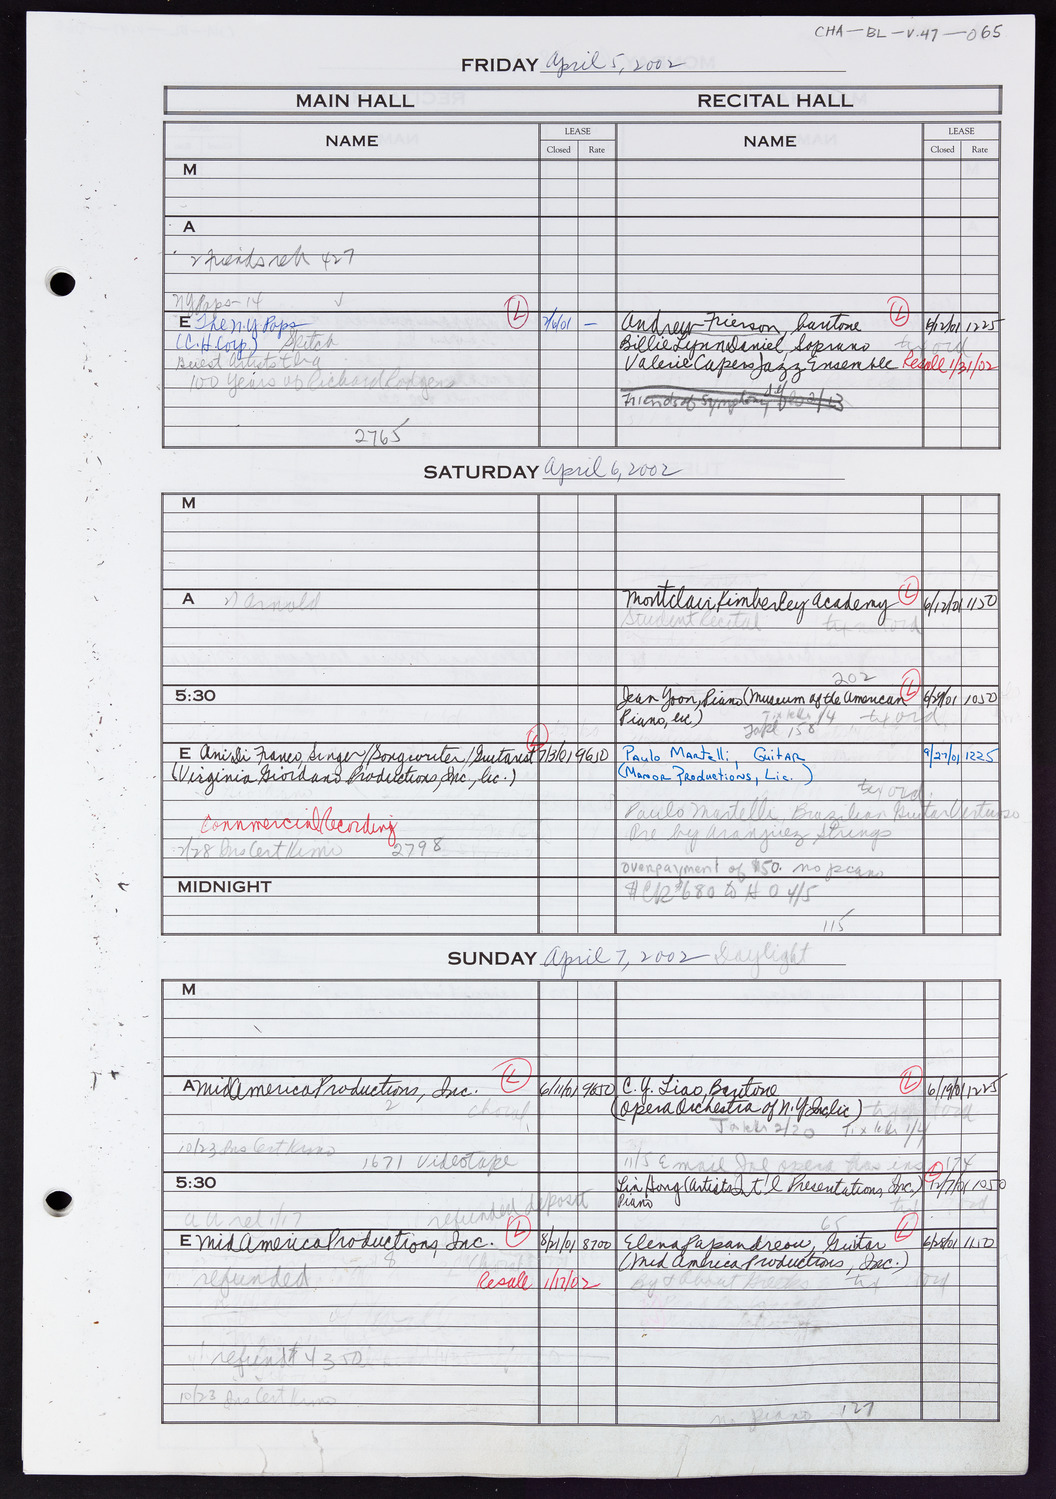 CHA-BL-V.47-065
FRIDAY April 5, 2002
MAIN HALL RECITAL HALL
NAME LEASE Closed Rate NAME LEASE Closed Rate
M
A
427
NY Pops-14
E The N.Y Pops L 2/6/01 — Andrew Frierson, baritone L 6/12/01 1225
(C.H. Corp) Sketch Billie Lynn Daniel, Soprano
Guest Artists Valerie Capers Jazz Ensemble Resale 1/31/02
100 Years of Richard Rodgers
Friends of Symphony
2765
SATURDAY April 6, 2002
M
A Arnold Montclair Kimberley Academy L 6/12/01 1150
Student Recital
202
5:30 Jean Yoon, Piano (Museum of the American L 6/29/01 1050
Piano, lic)
158
E Ani Di Franco, Singer/Songwriter/Guitarist L 7/3/01 9650 Paulo Martelli, Guitar 9/27/01 1225
(Virginia Giordano Productions, Inc, lic.) (Manor Productions, Lic.)
Paulo Martelli, Brazilian Guitar Virtuoso
Commercial Recording by Aranjuez Strings
2/28 Ins Cert Kimo 2798
overpayment of $50. no piano
MIDNIGHT #680 to H O 4/5
115
SUNDAY April 7, 2002 Daylight
M
A MidAmerica Productions, Inc. L 6/11/01 9650 C.Y. Liao, Baritone L 6/19/01 1225
2 (Opera Orchestra of N.Y. Inc lic)
10/23 Ins Cert Kimo
1671 videotape 174
5:30 Lin Hong (Artists Int'l Presentations, Inc.) L 12/7/01 1050
Piano
refunded deposit 65
E MidAmerica Productions, Inc. L 8/21/01 8700 Elena Papandreou, Guitar L 6/28/01 1150
8 (Mid America Productions, Inc.)
refunded Resale 1/17/02
refund $4350
10/23 Ins Cert Kimo
no piano 127